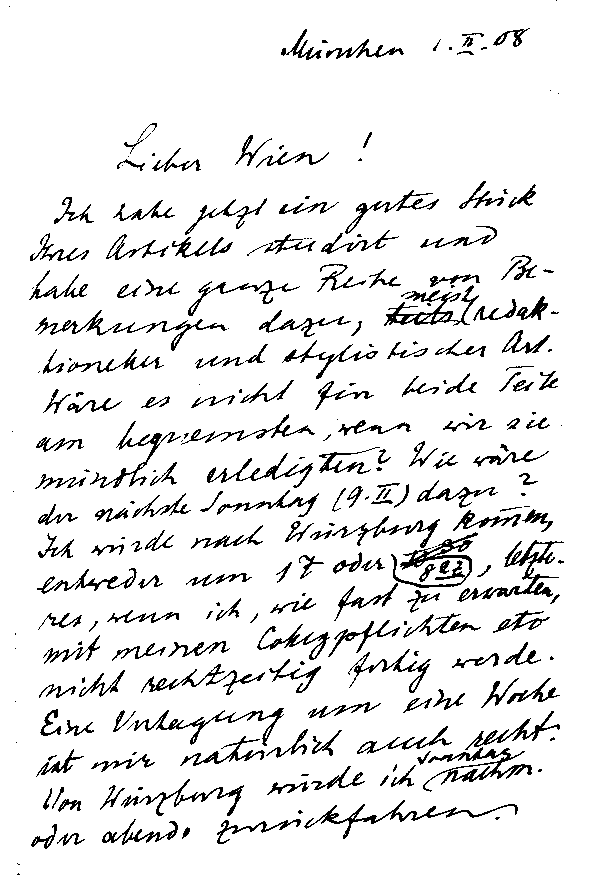 München 1.II.08
Lieber Wien!
Ich habe jetzt ein gutes Stück
Ihres Artikels studirt und
habe eine ganze Reihe von Be-
merkungen dazu, meist (redak-
tioneller und stylistischer Art.
Wäre es nicht für beide Teile
am bequemsten, wenn wir sie
mündlich erledigten? Wie wäre
der nächste Sonntag (9.II) dazu?
Ich würde nach Würzburg kommen,
entweder um 17 oder 8, letzte-
res, wenn ich, wie fast zu erwarten,
mit meinen Collegpflichten etc
nicht rechtzeitig fertig werde.
Eine Vertagung um eine Woche
ist mir natürlich auch recht.
Von Würzburg würde ich Sonntag nachm.
oder abends zurückfahren.